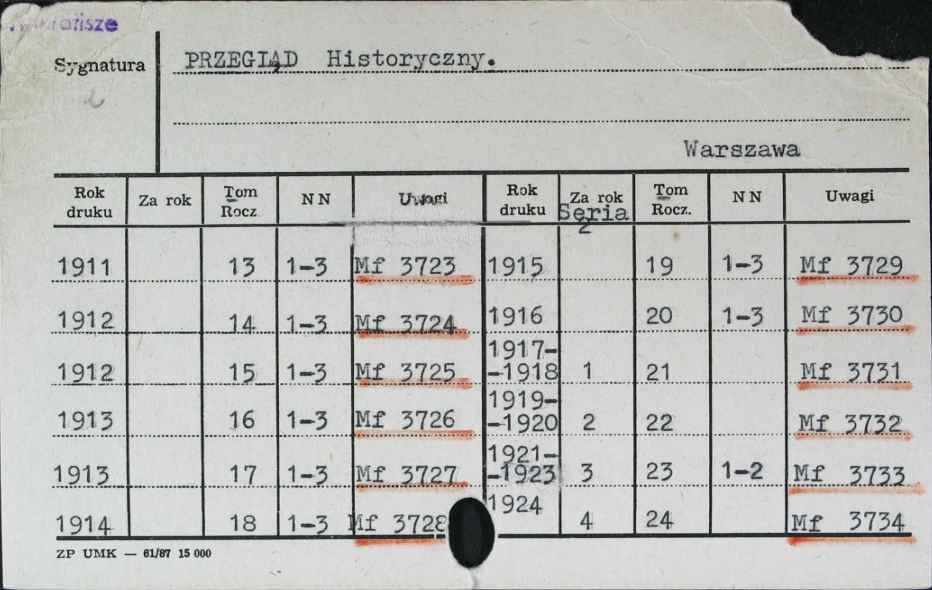 Sygnatura PRZEGLĄD Historyczny.
Warszawa
Rok druku Za rok Tom Rocz. N N Uwagi Rok druku Za rok Tom Rocz. N N Uwagi
Seria
2
1911 13 1-3 Mf 3723 1915 19 1-3 Mf 3729
1912 14 1-3 Mf 3724 1916 20 1-3 Mf 3730
1912 15 1-3 Mf 3725 1917--1918 1 21 Mf 3731
1913 16 1-3 Mf 3726 1919--1920 2 22 Mf 3732
1913 17 1-3 Mf 3727 1921--1923 3 23 1-2 Mf 3733
1914 18 1-3 Mf 3728 1924 4 24 Mf 3734
ZP UMK — 61/87 15 000